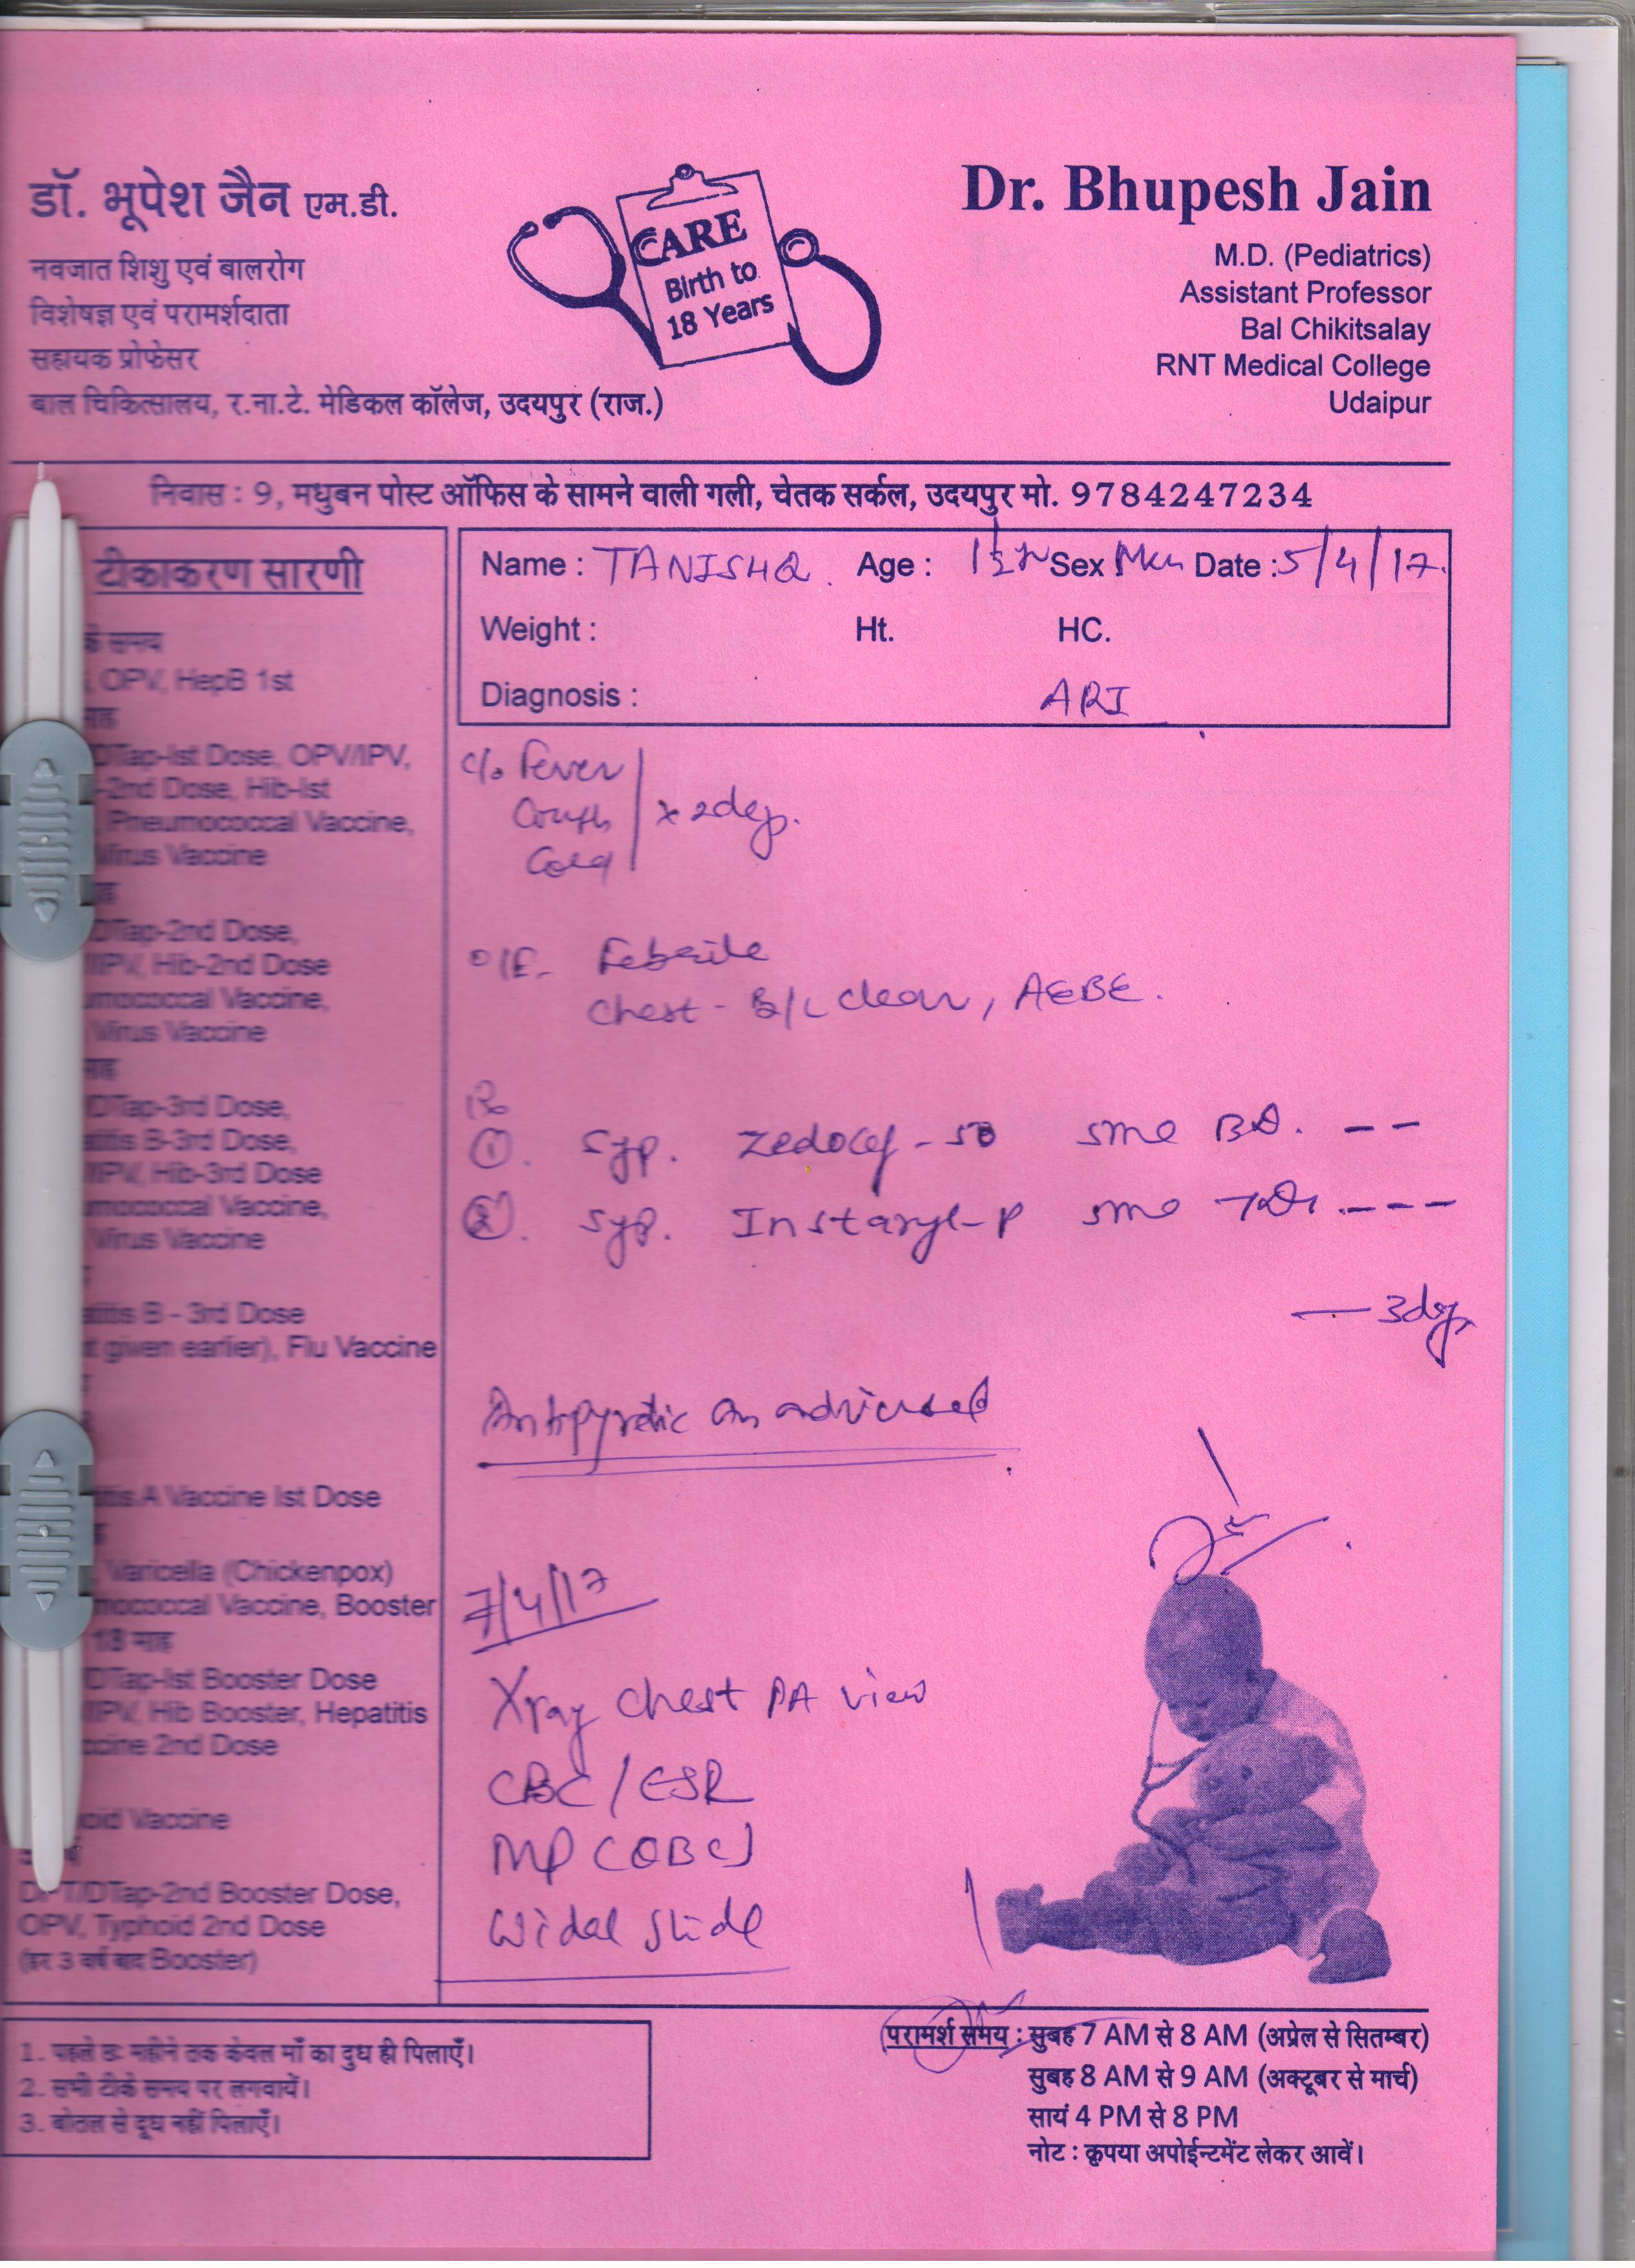 डॉ. भूपेश जैन एम.डी.
नवजात शिशु एवं बालरोग
विशेषज्ञ एवं परामर्शदाता
सहायक प्रोफेसर
बाल चिकित्सालय, र.ना.टे. मेडिकल कॉलेज, उदयपुर (राज.)
CARE
Birth to
18 Years
Dr. Bhupesh Jain
M.D. (Pediatrics)
Assistant Professor
Bal Chikitsalay
RNT Medical College
Udaipur
निवास : 9, मधुबन पोस्ट ऑफिस के सामने वाली गली, चेतक सर्कल, उदयपुर मो. 9784247234
टीकाकरण सारणी
के समय
OPV, HepB 1st
माह
DTap-Ist Dose, OPV/IPV,
-2nd Dose, Hib-Ist
Pneumococcal Vaccine,
Virus Vaccine
DTap-2nd Dose,
IPV, Hib-2nd Dose
Vaccine,
Virus Vaccine
माह
DTap-3rd Dose,
B-3rd Dose,
IPV, Hib-3rd Dose
Vaccine,
Virus Vaccine
B - 3rd Dose
given earlier), Flu Vaccine
A Vaccine Ist Dose
Varicella (Chickenpox)
Vaccine, Booster
18 माह
DTap-Ist Booster Dose
IPV, Hib Booster, Hepatitis
2nd Dose
Vaccine
DPT/DTap-2nd Booster Dose,
OPV, Typhoid 2nd Dose
(हर 3 वर्ष बाद Booster)
Name : TANISHQ. Age : 1½ yr Sex Date : 5/4/17.
Weight : Ht. HC.
Diagnosis : ARI
c/o Fever
Cough x 2 days.
Cold
O/E- Febrile
Chest - B/L clear, AEBE.
Rx
①. Syp. Zedocef-50 5ml BD. --
②. Syp. Instaryl-P 5ml TDS. ---
— 3 days
Antipyretic as adviced
7/4/17
Xray Chest PA view
CBC/ESR
MP (QBC)
Widal Slide
1. पहले छः महीने तक केवल माँ का दुध ही पिलाएँ।
2. सभी टीके समय पर लगवायें।
3. बोतल से दूध नहीं पिलाएँ।
परामर्श समय : सुबह 7 AM से 8 AM (अप्रेल से सितम्बर)
सुबह 8 AM से 9 AM (अक्टूबर से मार्च)
सायं 4 PM से 8 PM
नोट : कृपया अपोईन्टमेंट लेकर आवें।